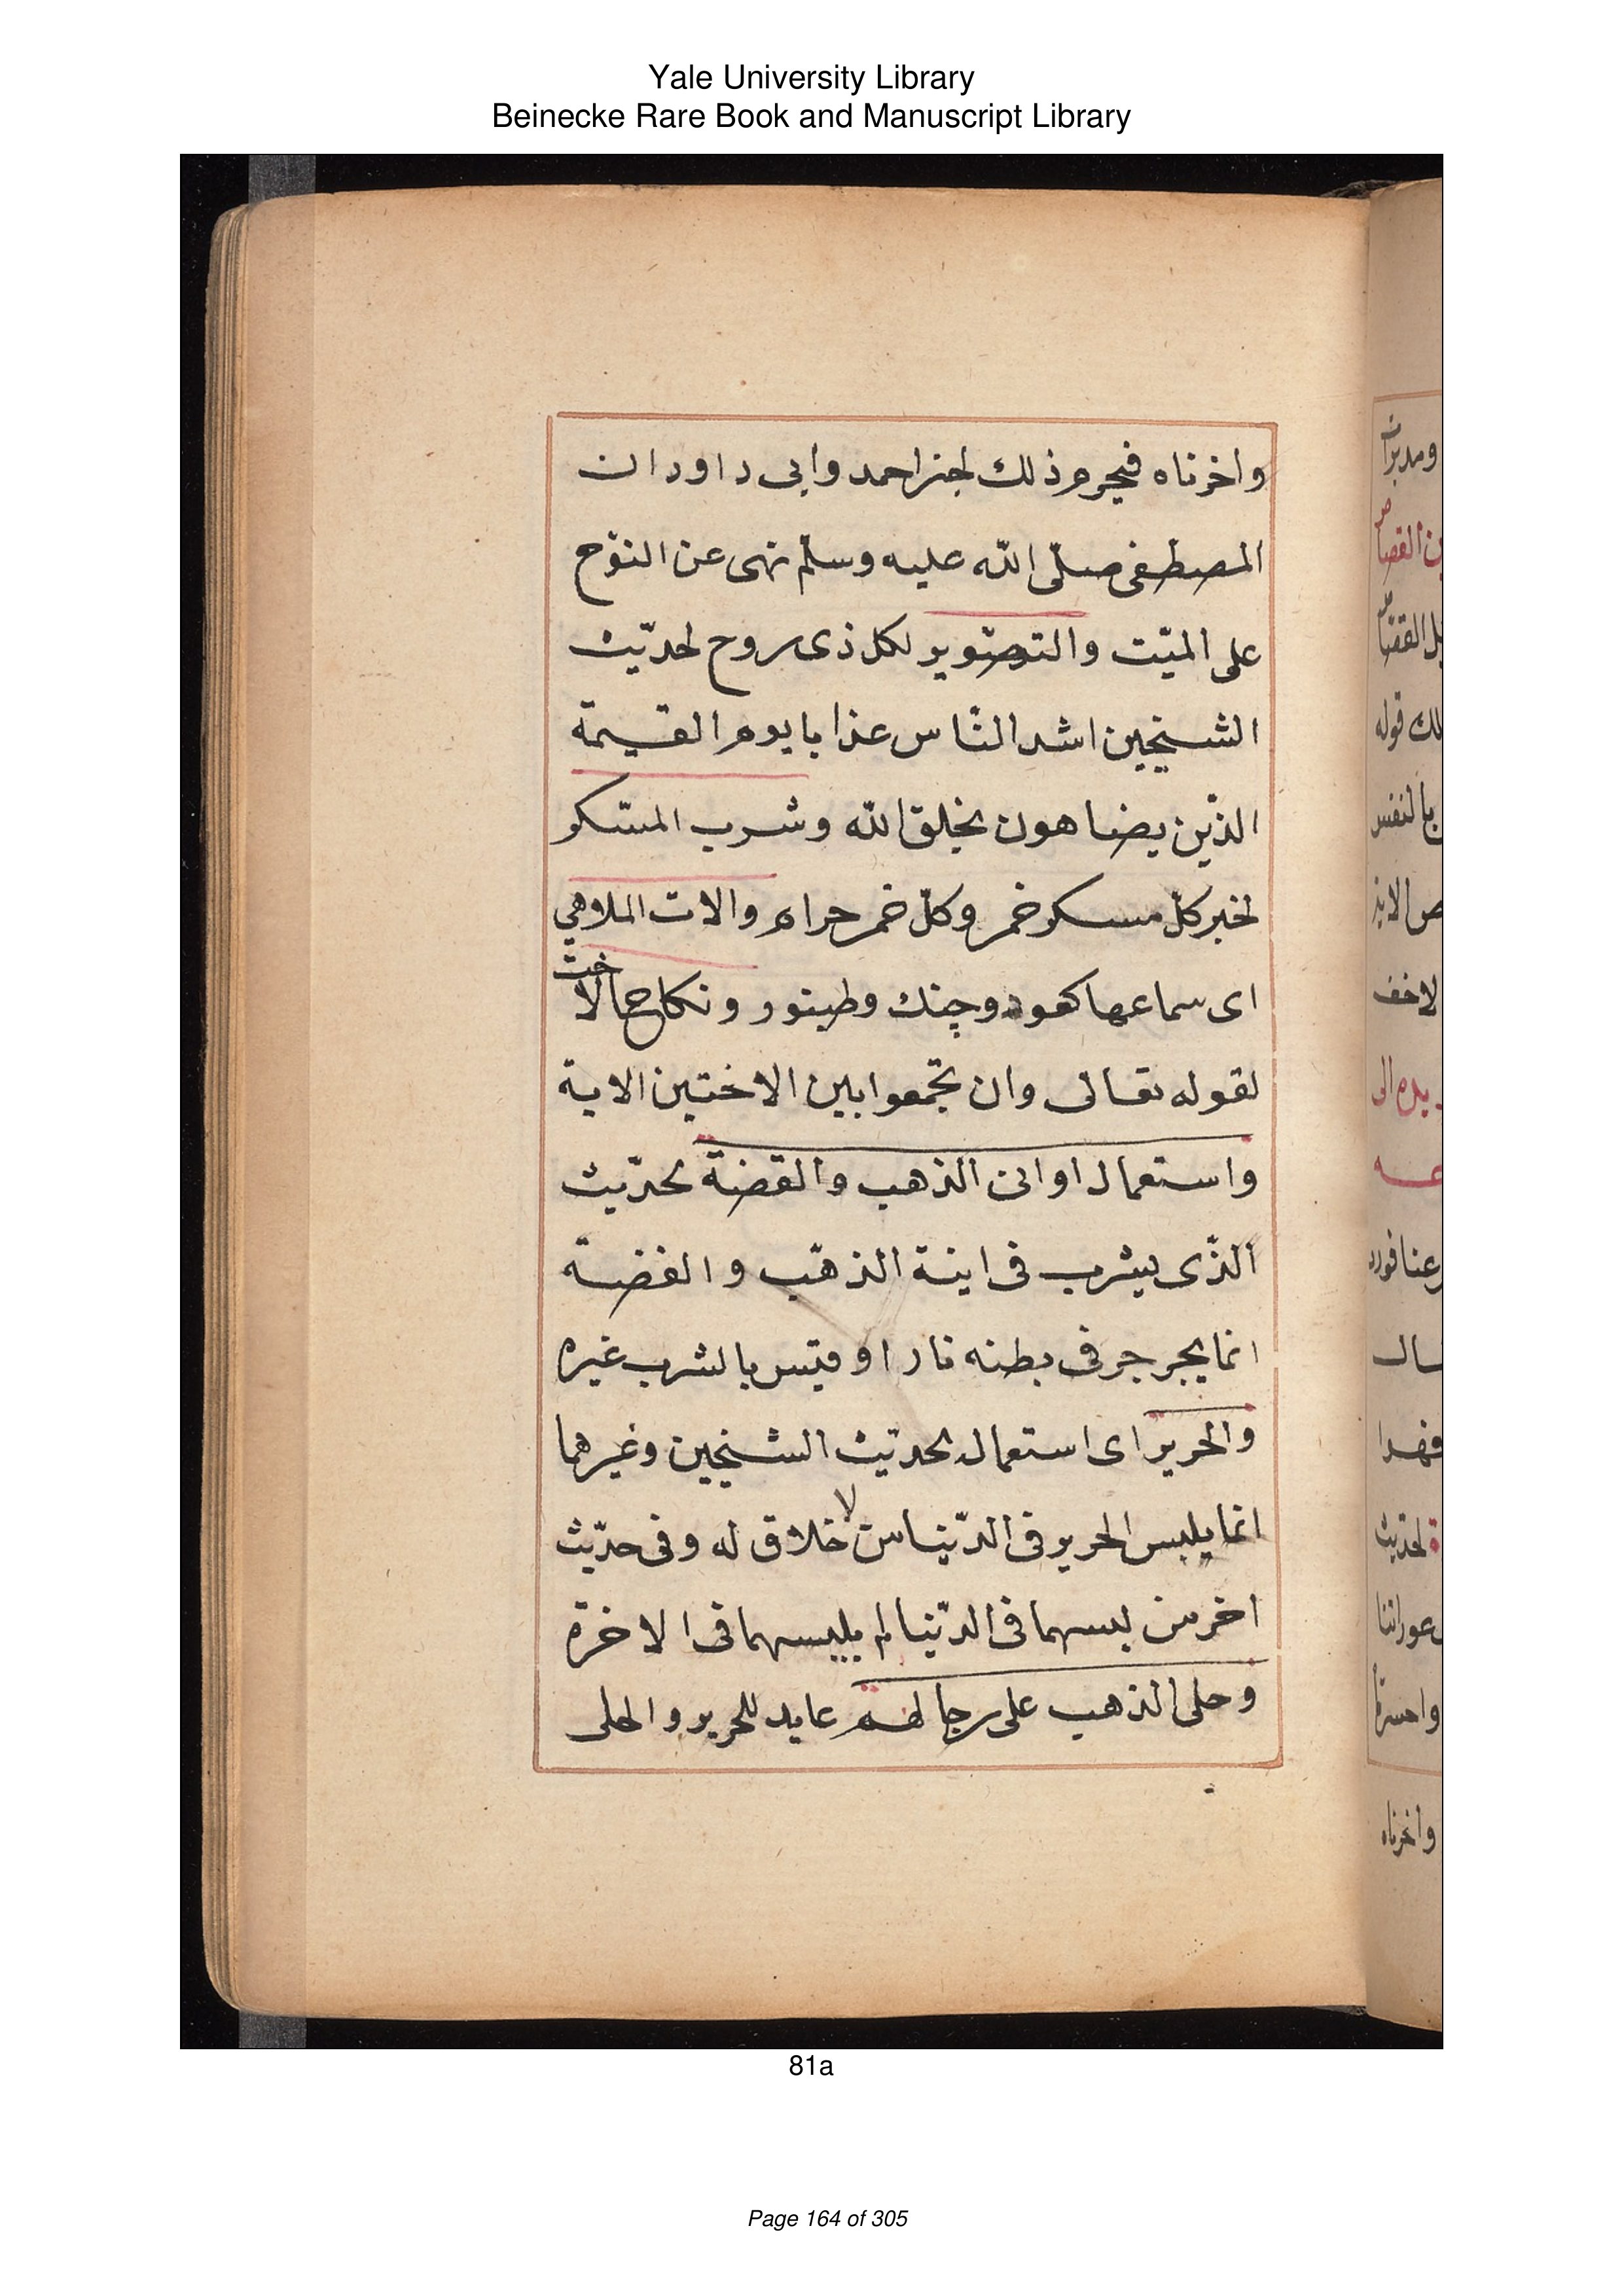 Yale University Library
Beinecke Rare Book and Manuscript Library
واخرناه فيحرم ذلك لخبر احمد وابى داود ان
المصطفى صلّى الله عليه وسلّم نهى عن النوّح
على الميّت والتوصتوير لكل ذى روح لحديّث
الشيخين اشد النّاس عذابا يوم القيمة
الذّين يضاهون بخلق الله وشرب المسكر
لخبر كلّ مسكر خمر وكلّ خمر حرام والات الملاهي
اى سماعها كعود وچنك وطينور ونكاح الا
خت
لقوله تعالى وان تجمعوا بين الاختين الاية
واستعمال اوانى الذهب والفضة لحدّيث
الذّى يشرب فى اينة الذهّب والفضة
انما يجرجر فى بطنه نارا وقيس بالشرب غيره
والحرير اى استعماله لحديث الشيخين وغيرهما
انما يلبس الحرير فى الدّنيا من لا خلاق له وفى حدّيث
اخر من لبسهما فى الدّنيا لم يلبسهما فى الاخرة
وحلى الذهب على رجالهم عايد للحرير والحلى
ومدبرا
ن القصا
لك قوله
بالنفس
يده الى
لحديث
واخرناه
81a
Page 164 of 305